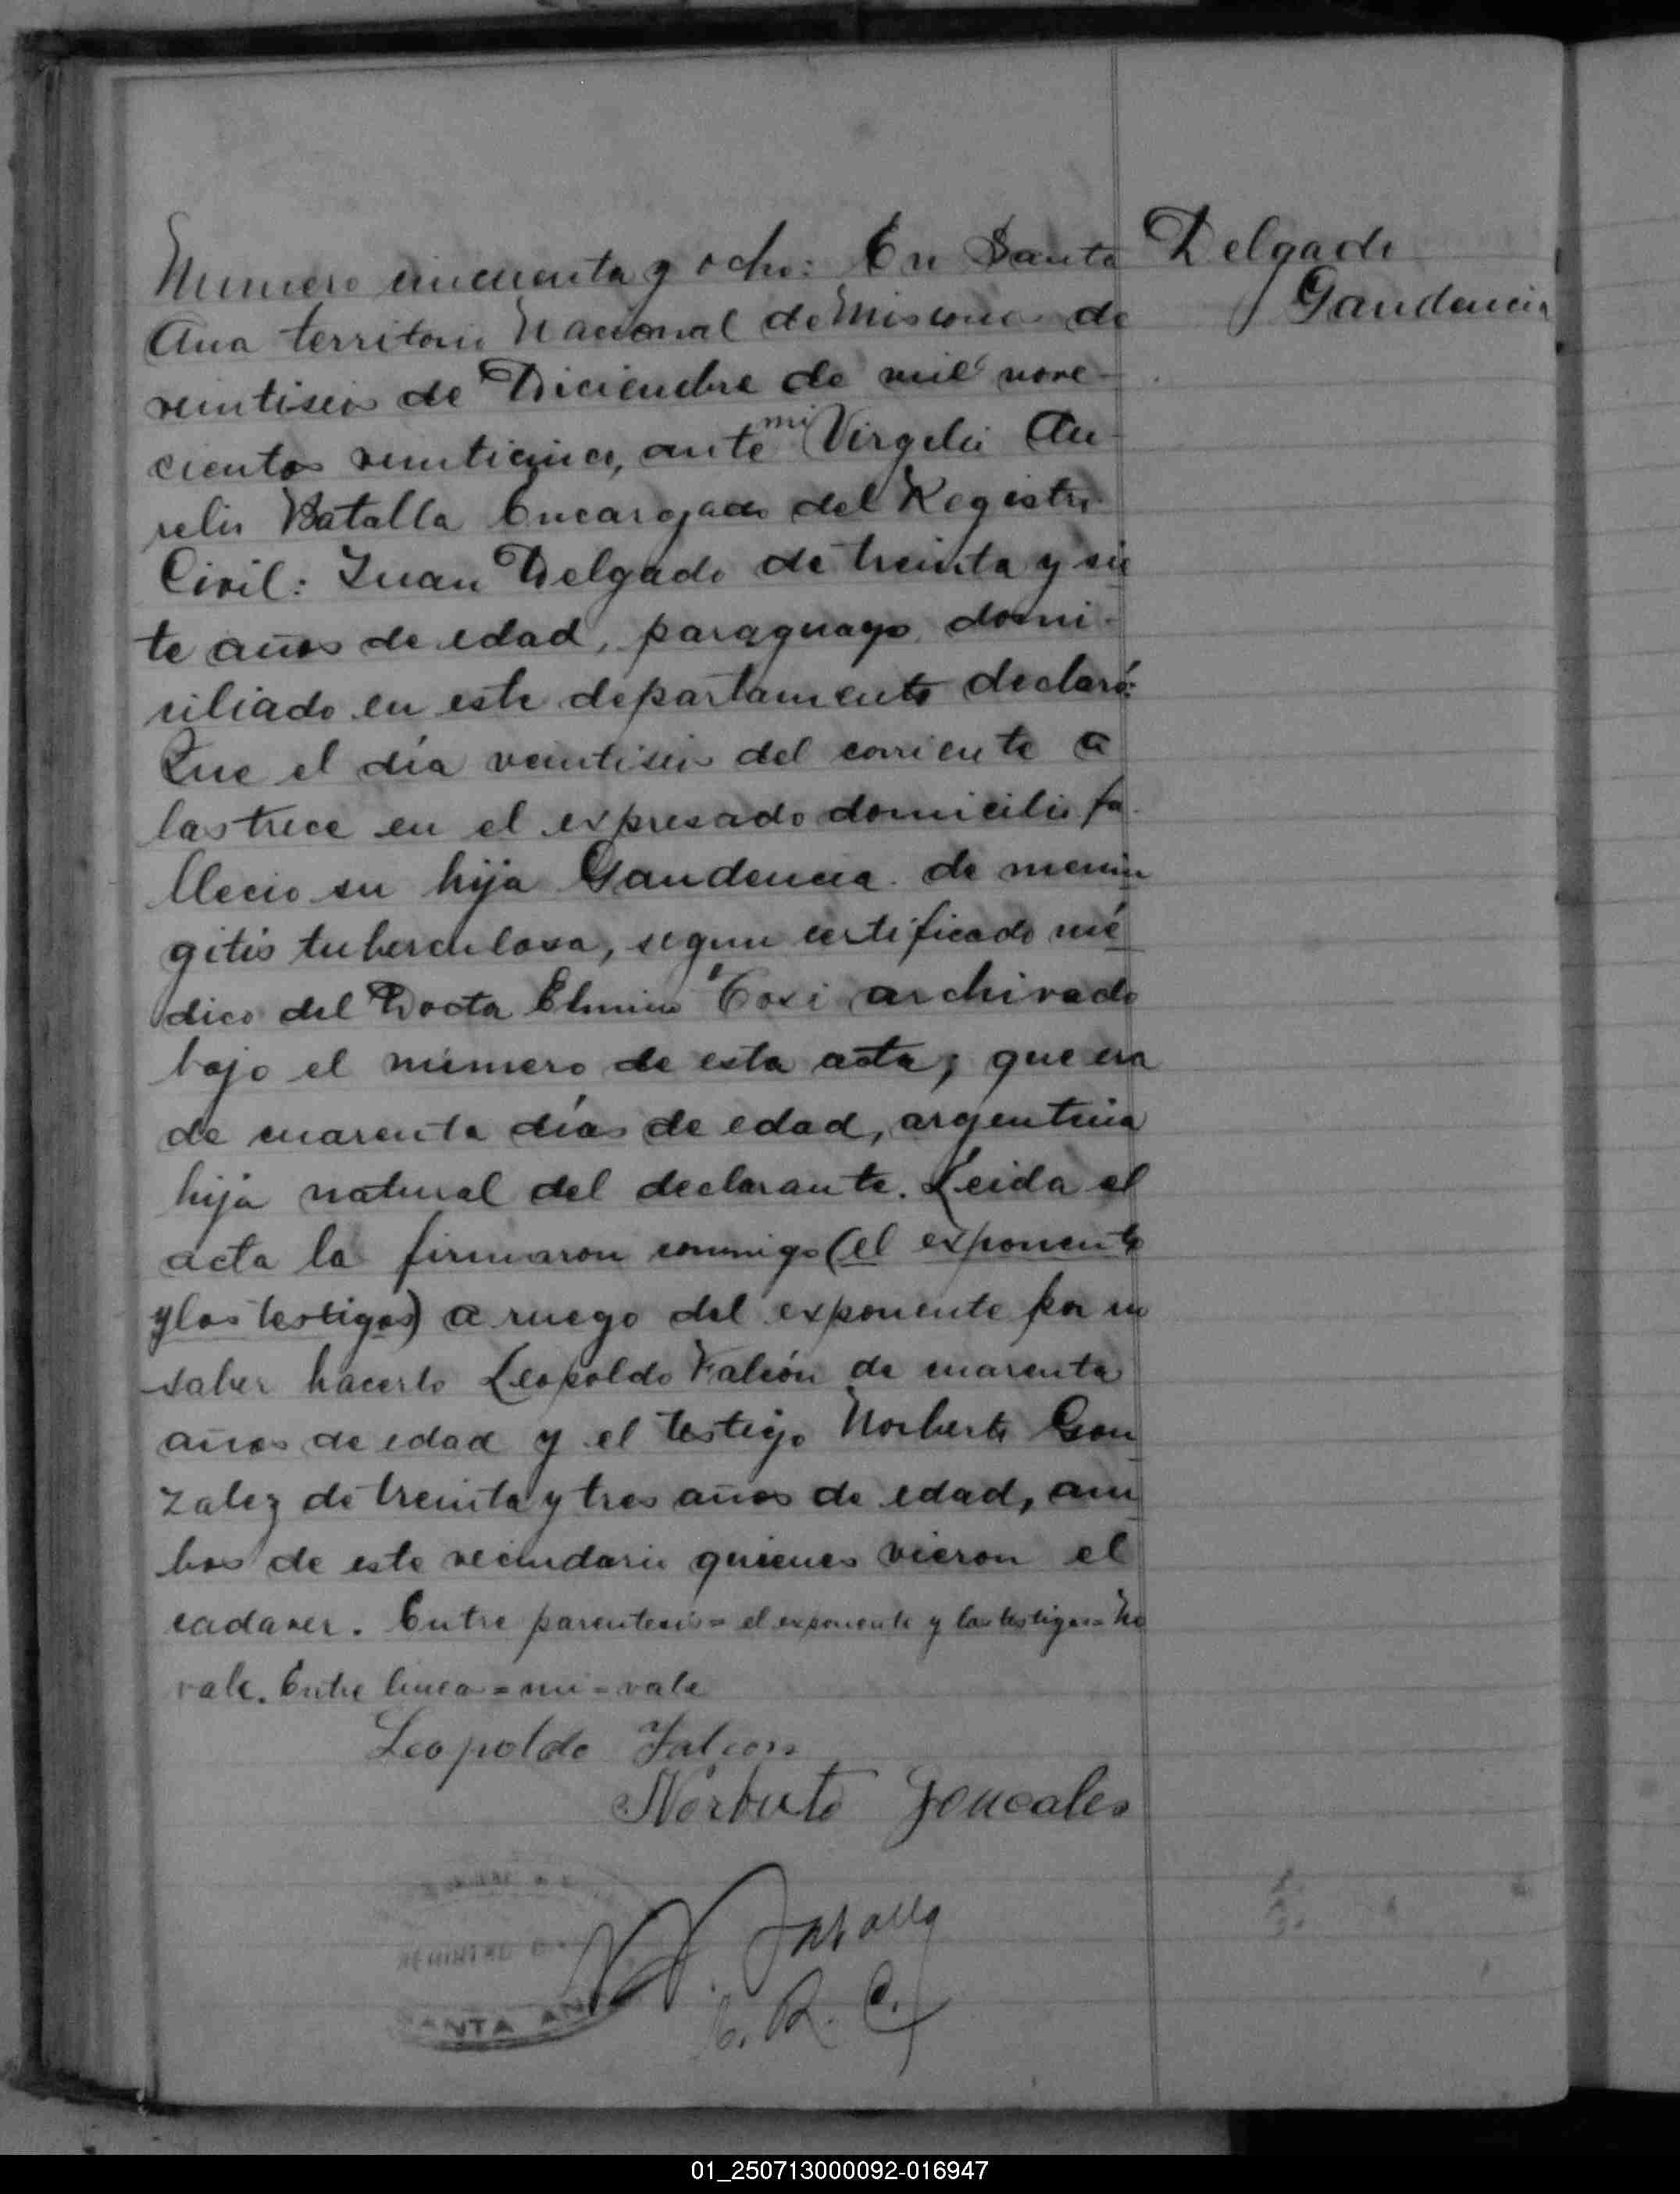 Numero cincuenta y ocho: En Santa
Ana territorio Nacional de Misiones de
veintiseis de Diciembre de mil nove-
cientos veinticinco, ante mi Virgilio Au-
relio Batalla Encargado del Registro
Civil: Juan Delgado de treinta y sie
te años de edad, paraguayo, domi-
ciliado en este departamento declaró:
Que el día veintiseis del corriente a
las trece en el expresado domicilio fa-
llecio su hija Gaudencia de menin
gitis tuberculosa, segun certificado mé
dico del Doctor Cosi archivado
bajo el número de esta acta; que era
de cuarenta días de edad, argentina
hija natural del declarante. Leida el
acta la firmaron conmigo (el exponente
y los testigos) a ruego del exponente por no
saber hacerlo Leopoldo Falcón de cuarenta
años de edad y el testigo Norberto Gon
zalez de treinta y tres años de edad, am
bos de este vecindario quienes vieron el
cadaver. Entre parentesis = el exponente y los testigos = No
vale. Entre linea = mi = vale
Leopoldo Falcon
Norberto Goncales
Batalla
E. R. C.
Delgado
Gaudencia
REGISTRO C
SANTA ANA
01_250713000092-016947